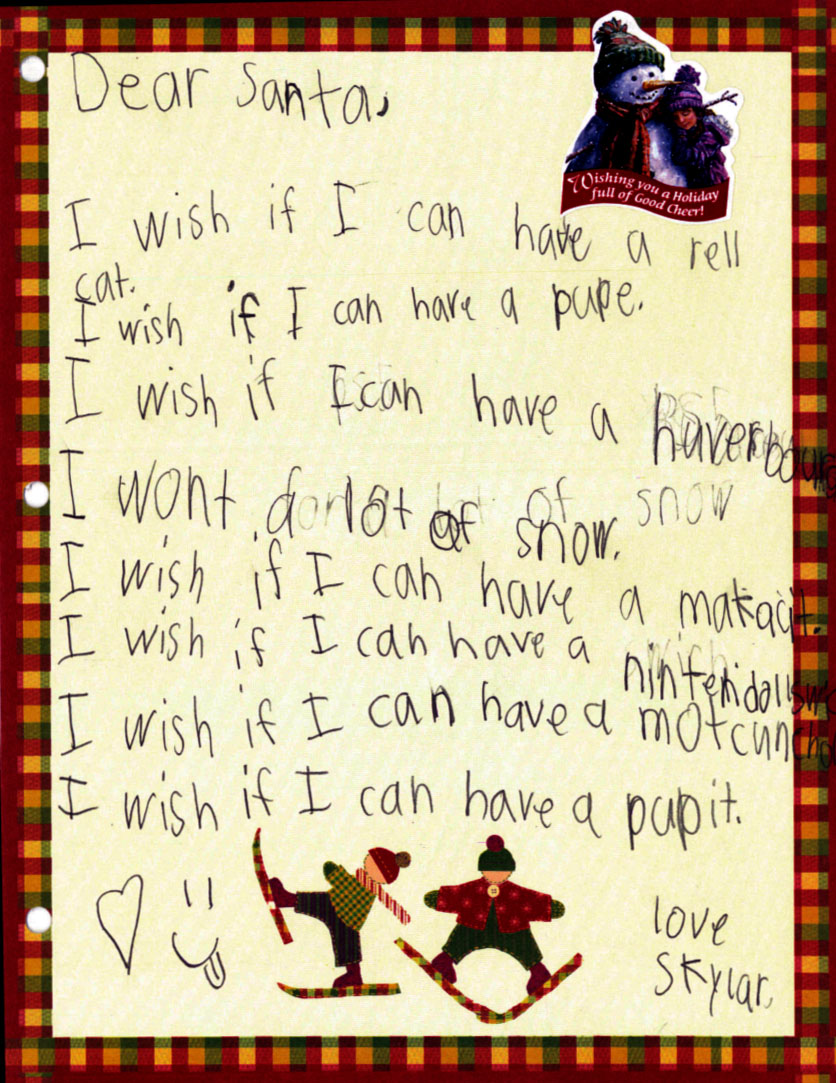 Dear Santa,
Wishing you a Holiday
full of Good Cheer!
I wish if I can have a rell
cat.
I wish if I can have a pupe.
I wish if I can have a haverbour
I wont a lot of snow.
I wish if I can have a makacit.
I wish if I can have a
I wish if I can have a
I wish if I can have a pupit.
love
Skylar.